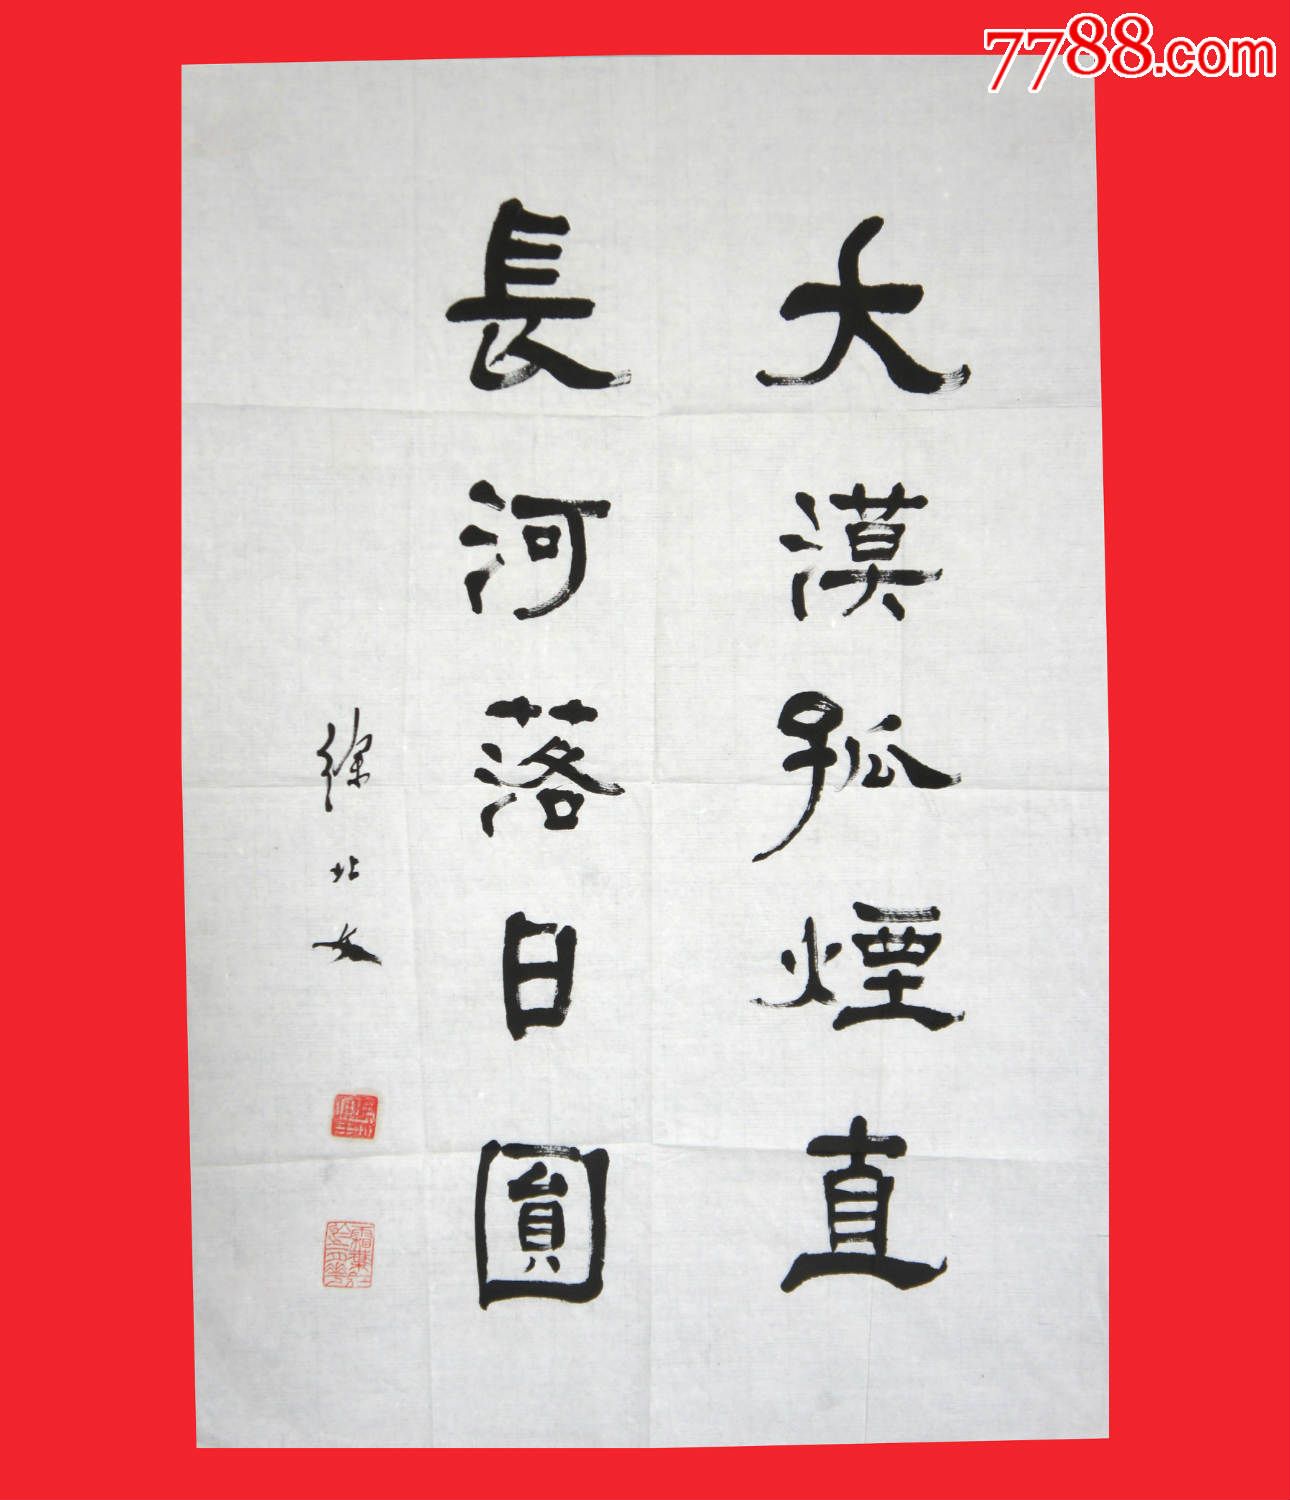 7788.com
大漠孤煙直
長河落日圓
徐北文